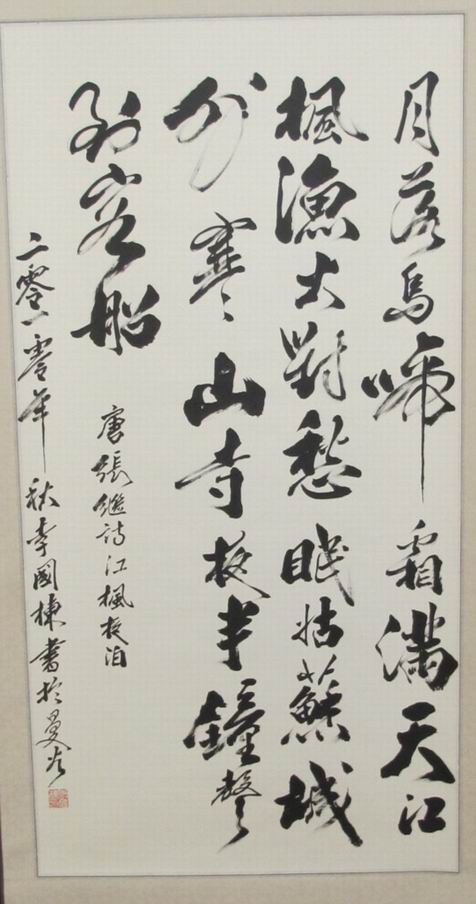 月落烏啼霜滿天江
楓漁火對愁眠姑蘇城
外寒山寺夜半鐘聲
到客船
唐張繼詩江楓夜泊
二零一零年秋李國棟書於曼谷